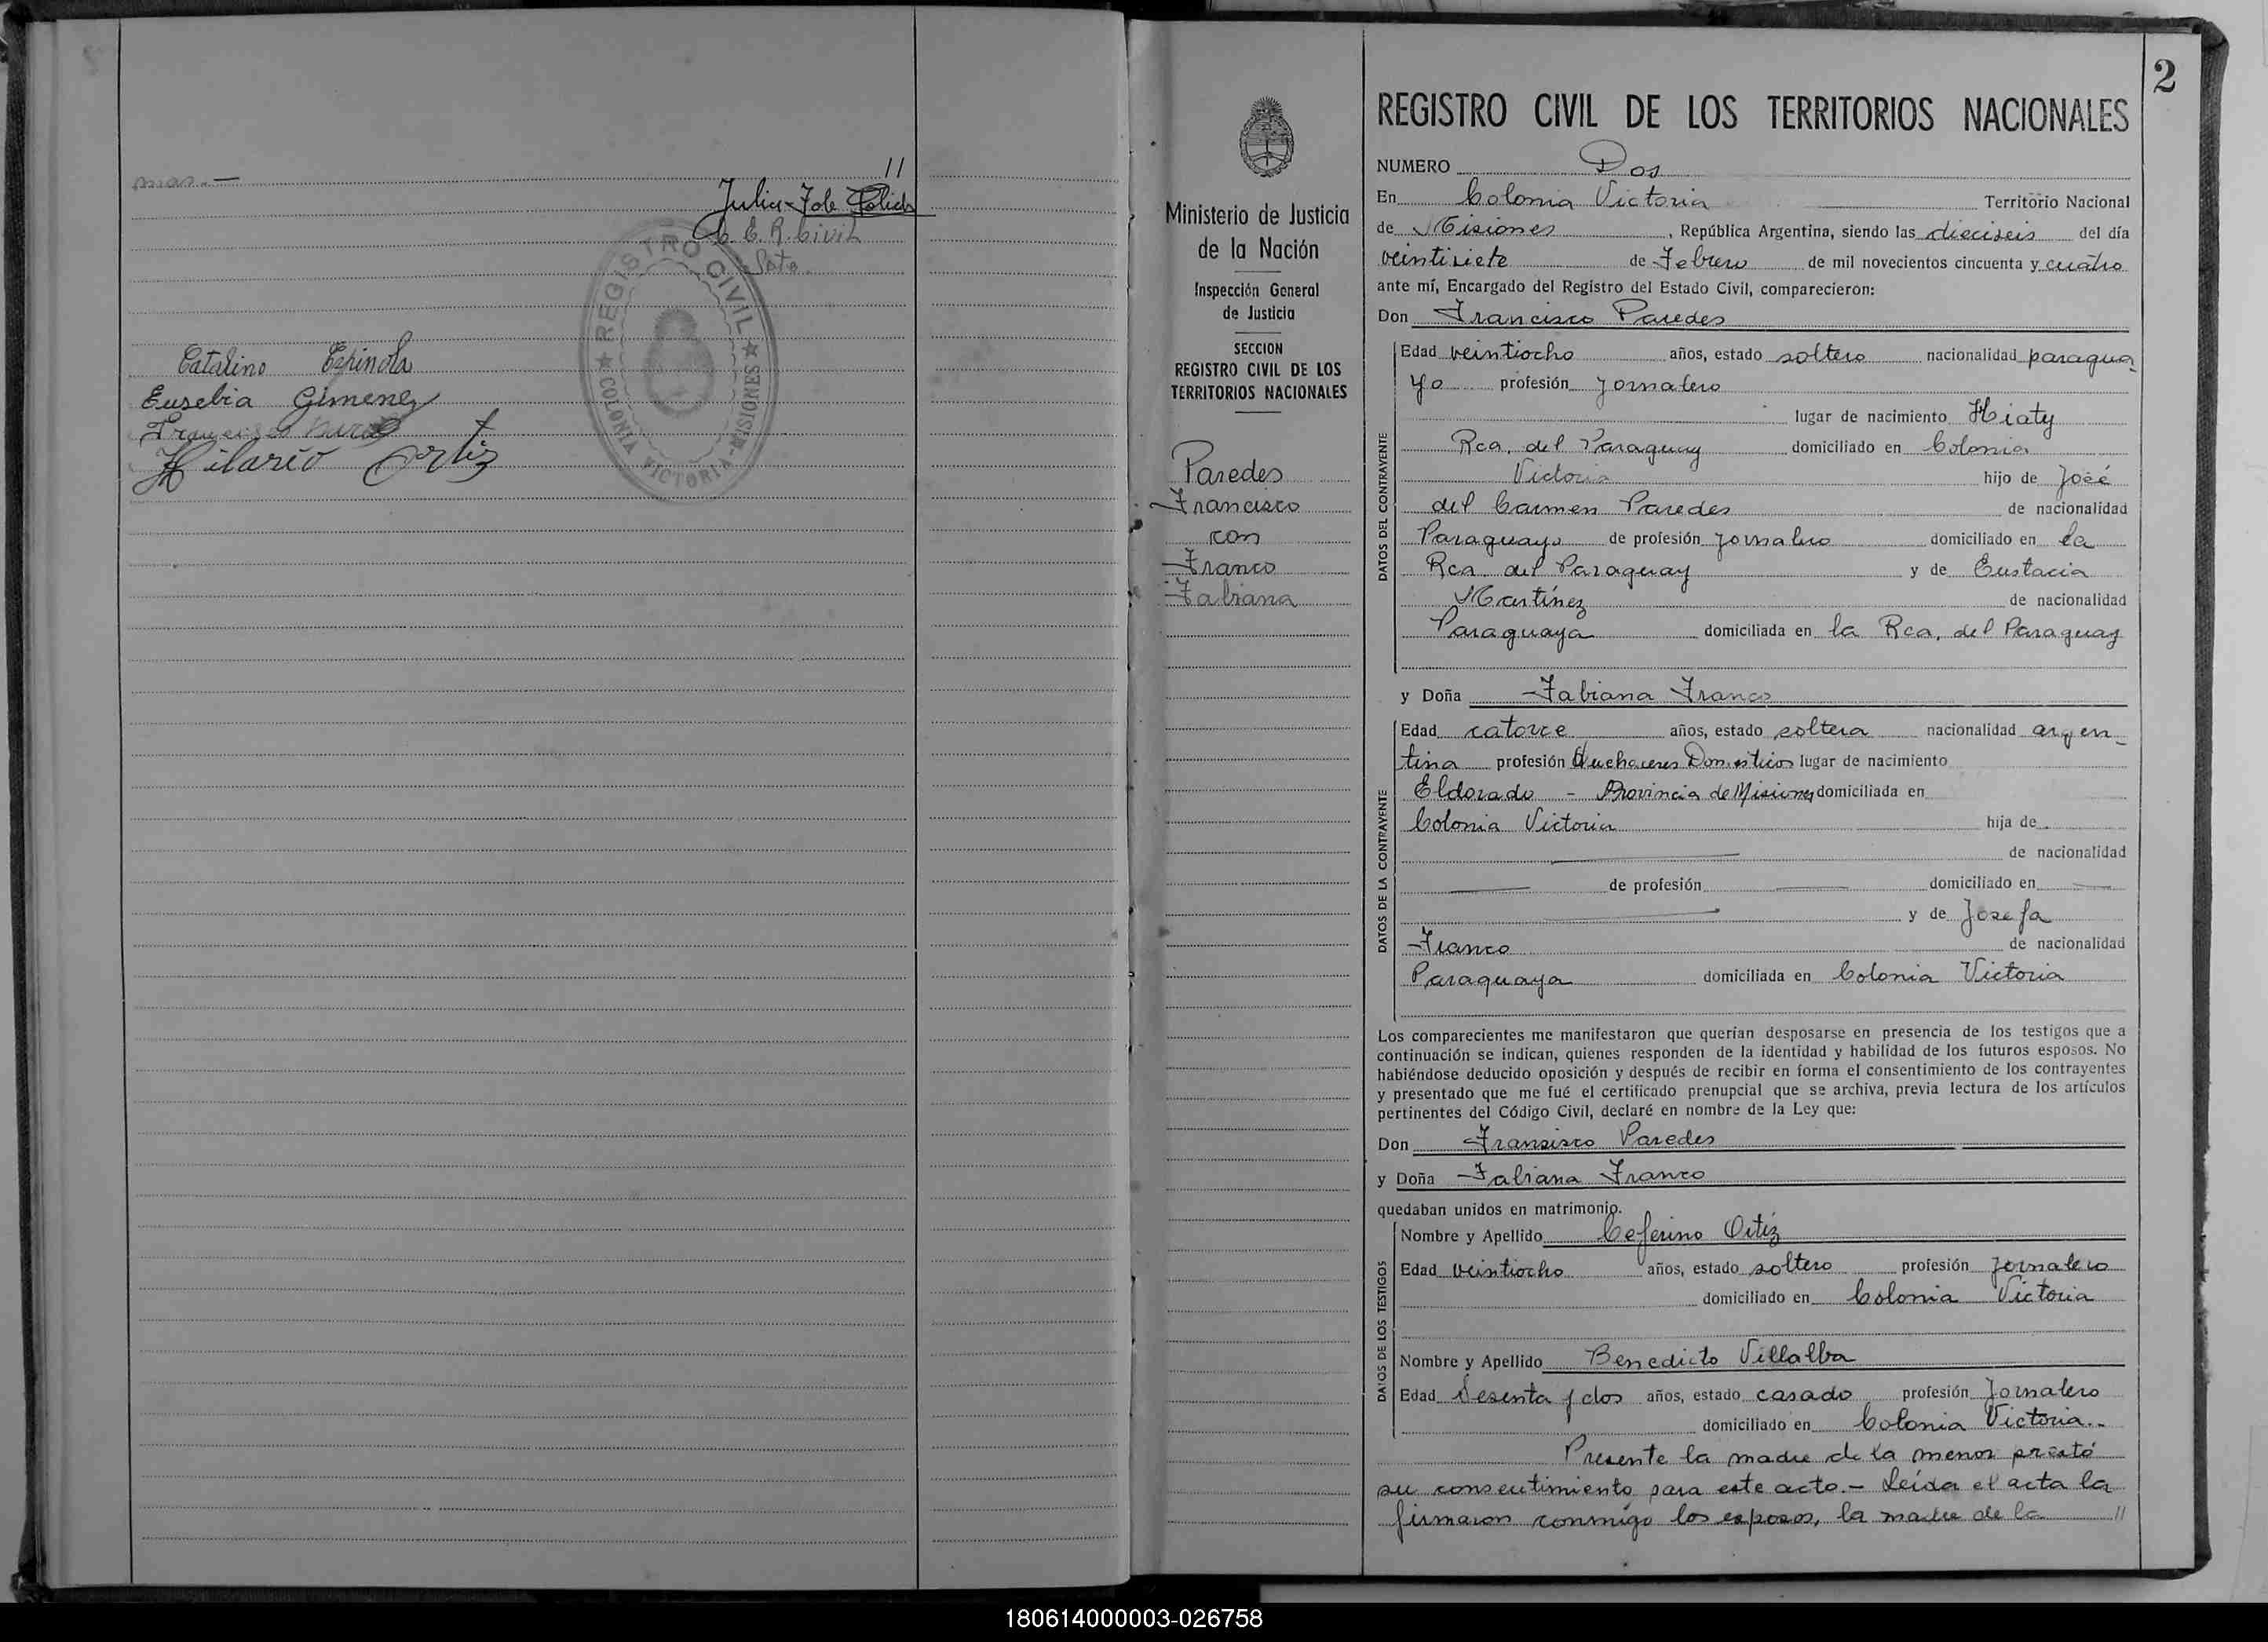 mas.—
//
C. E. R. Civil
REGISTRO CIVIL
COLONIA VICTORIA - MISIONES
Catalino Espinola
Eusebia Gimenez
Hilario Ortiz
2
Ministerio de Justicia
de la Nación
Inspección General
de Justicia
SECCION
REGISTRO CIVIL DE LOS
TERRITORIOS NACIONALES
Paredes
Francisco
con
Franco
Fabiana
REGISTRO CIVIL DE LOS TERRITORIOS NACIONALES
NUMERO Dos
En Colonia Victoria Territorio Nacional
de Misiones, República Argentina, siendo las dieciseis del día
veintisiete de Febrero de mil novecientos cincuenta y cuatro
ante mí, Encargado del Registro del Estado Civil, comparecieron:
Don Francisco Paredes
DATOS DEL CONTRAYENTE
Edad veintiocho años, estado soltero nacionalidad paragua
yo profesión Jornalero
lugar de nacimiento Hiaty
Rca. del Paraguay domiciliado en Colonia
Victoria hijo de José
del Carmen Paredes de nacionalidad
Paraguayo de profesión Jornalero domiciliado en la
Rca. del Paraguay y de Eustacia
Martínez de nacionalidad
Paraguaya domiciliada en la Rca. del Paraguay
y Doña Fabiana Franco
DATOS DE LA CONTRAYENTE
Edad catorce años, estado soltera nacionalidad argen-
tina profesión Quehaceres Domésticos lugar de nacimiento
Eldorado - Provincia de Misiones domiciliada en
Colonia Victoria hija de
de nacionalidad
de profesión domiciliado en
y de Josefa
Franco de nacionalidad
Paraguaya domiciliada en Colonia Victoria
Los comparecientes me manifestaron que querían desposarse en presencia de los testigos que a
continuación se indican, quienes responden de la identidad y habilidad de los futuros esposos. No
habiéndose deducido oposición y después de recibir en forma el consentimiento de los contrayentes
y presentado que me fué el certificado prenupcial que se archiva, previa lectura de los artículos
pertinentes del Código Civil, declaré en nombre de la Ley que:
Don Fransisco Paredes
y Doña Fabiana Franco
quedaban unidos en matrimonio.
DATOS DE LOS TESTIGOS
Nombre y Apellido Ceferino Ortíz
Edad veintiocho años, estado soltero profesión Jornalero
domiciliado en Colonia Victoria
Nombre y Apellido Benedicto Villalba
Edad Sesenta y dos años, estado casado profesión Jornalero
domiciliado en Colonia Victoria.-
Presente la madre de la menor prestó
su consentimiento para este acto.- Leída el acta la
firmaron conmigo los esposos, la madre de la //
180614000003-026758